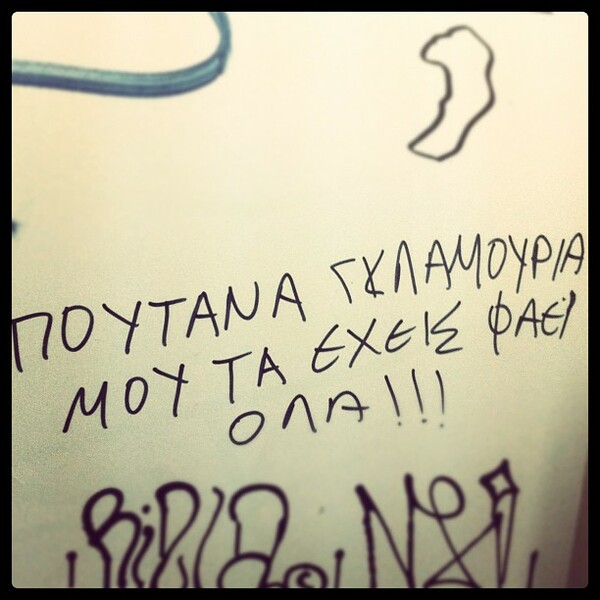 ΠΟΥΤΑΝΑ ΓΚΛΑΜΟΥΡΙΑ
ΜΟΥ ΤΑ ΕΧΕΙΣ ΦΑΕΙ
ΟΛΑ!!!